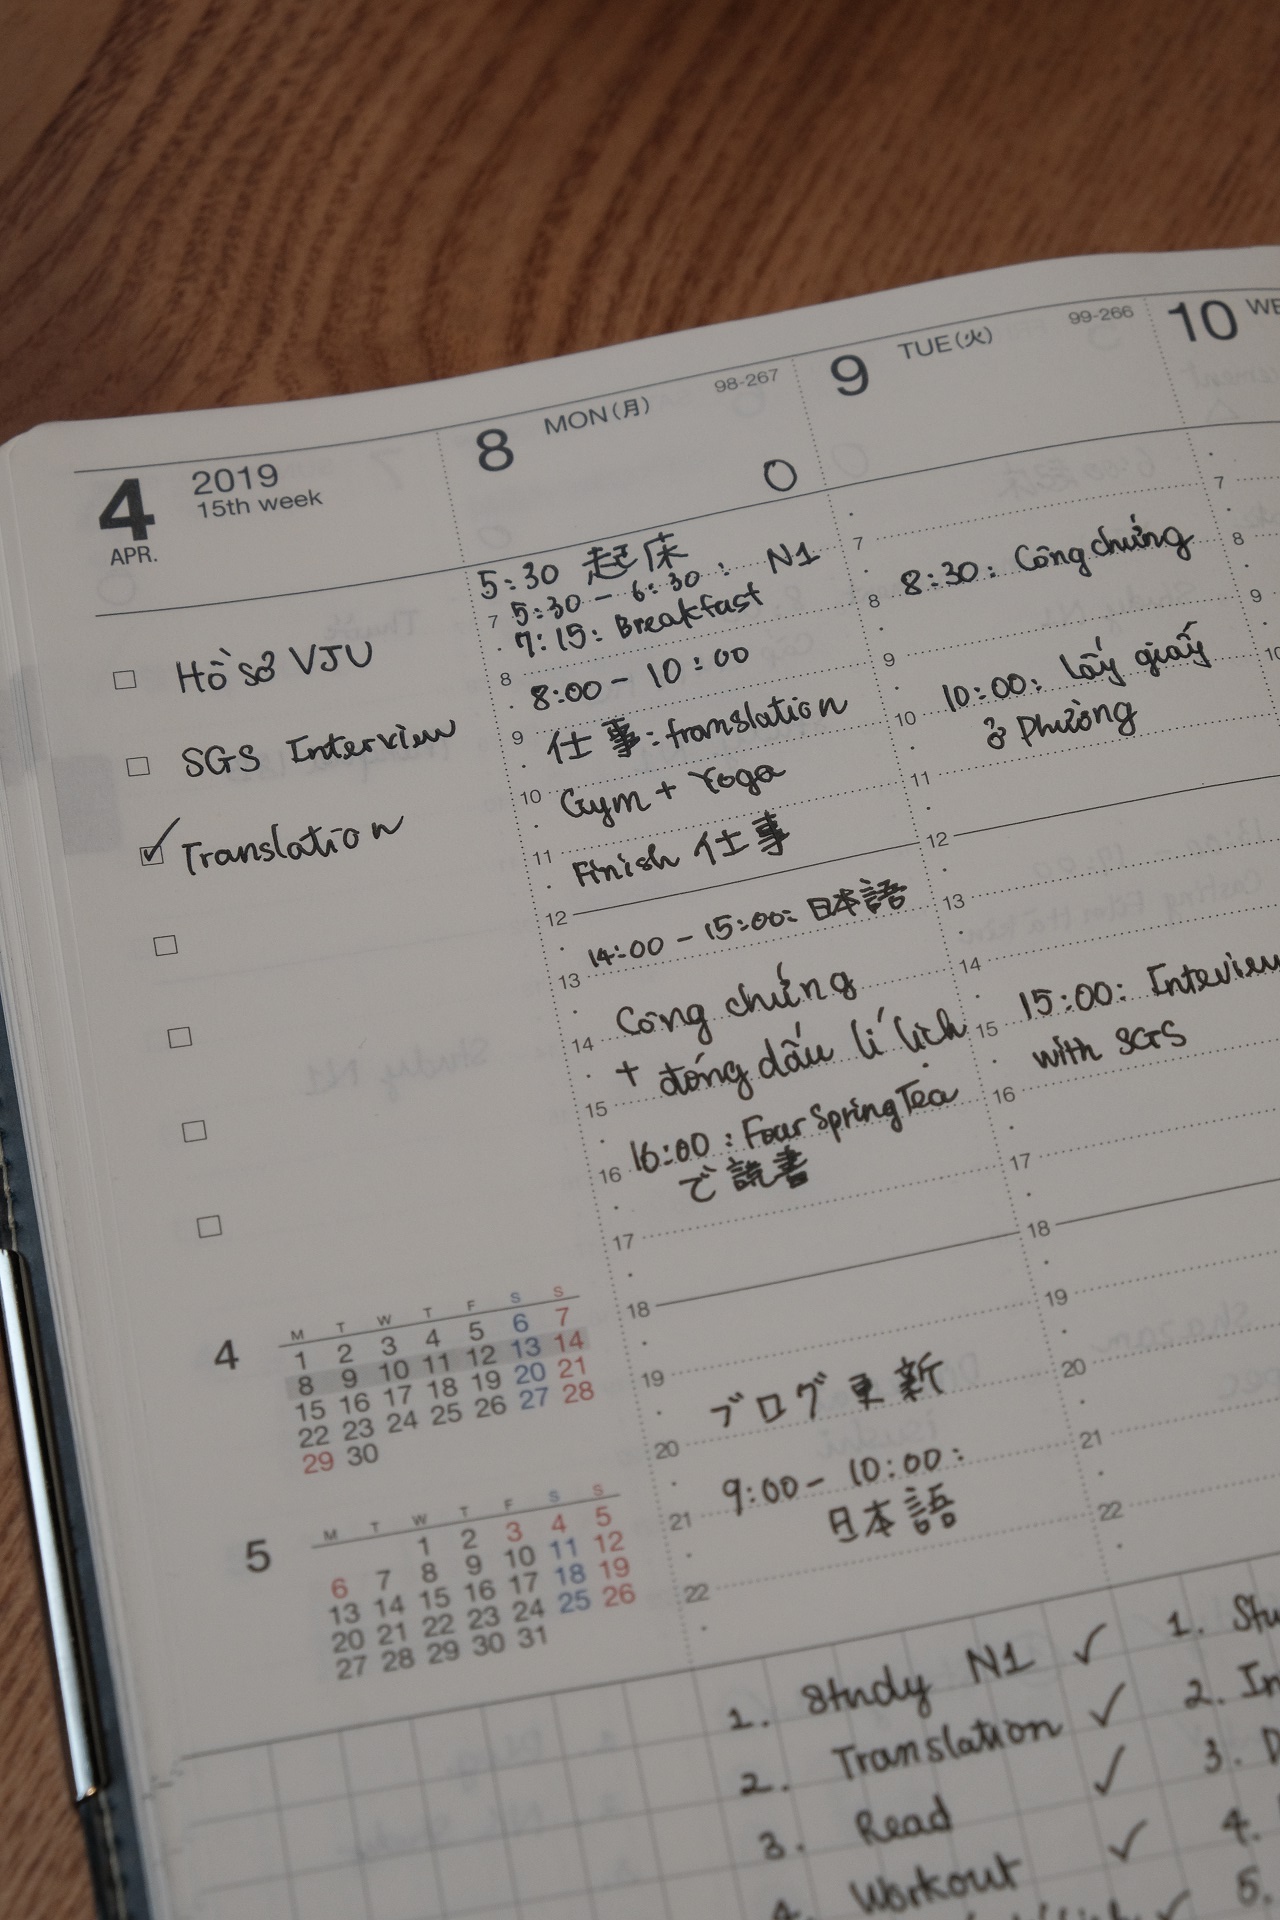 4
APR.
2019
15th week
□ Hồ sơ VJU
□ SGS Interview
☑ Translation
□
□
□
□
4
M T W T F S S
1 2 3 4 5 6 7
8 9 10 11 12 13 14
15 16 17 18 19 20 21
22 23 24 25 26 27 28
29 30
5
M T W T F S S
1 2 3 4 5
6 7 8 9 10 11 12
13 14 15 16 17 18 19
20 21 22 23 24 25 26
27 28 29 30 31
8 MON(月) 98-267
○
5:30 起床
5:30 - 6:30 : N1
7
7:15: Breakfast
8
8:00 - 10:00
9
仕事: translation
10
Gym + Yoga
11
Finish 仕事
12
14:00 - 15:00: 日本語
13
Công chứng
14
+ đóng dấu lí lịch
15
16:00 : Four Spring Tea
16
で読書
17
18
19
ブログ更新
20
9:00 - 10:00:
21
日本語
22
1. Study N1 ✓
2. Translation ✓
3. Read ✓
4. Workout ✓
9 TUE(火) 99-266
7
8:30: Công chứng
8
9
10:00: Lấy giấy
10
ở Phường
11
12
13
14
15:00: Interview
15
with SGS
16
17
18
19
20
21
22
1.
2.
3.
4.
5.
10
7
8
9
10